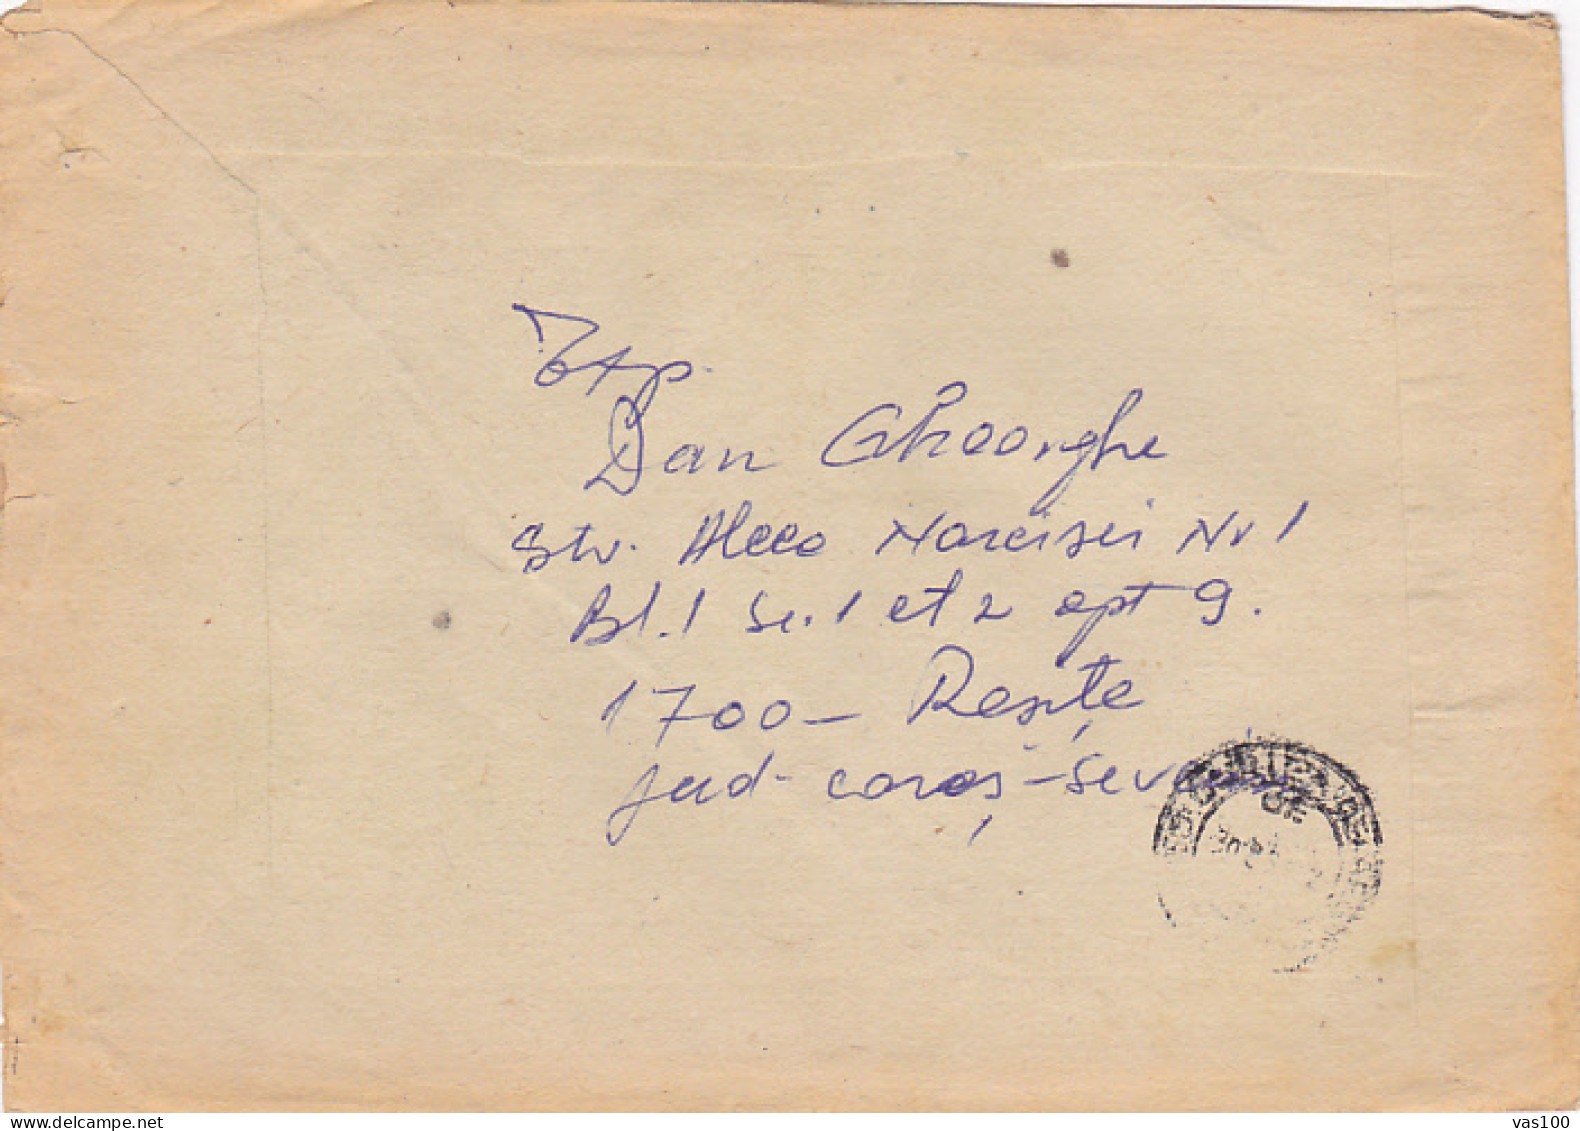 Exp.
Dan Gheorghe
Str. Aleea Narcisei Nr 1
Bl. 1 Sc. 1 et 2 apt 9.
1700 - Reșița
jud - Caraș - Sev
www.delcampe.net
vas100